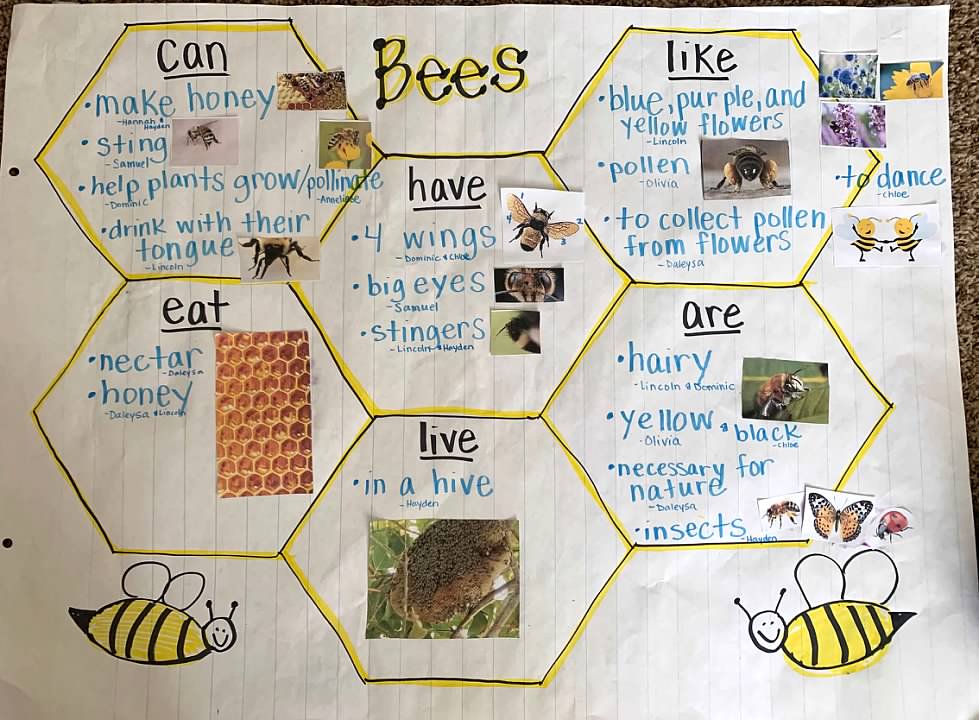 Bees
can
• make honey
- Hannah & Hayden
• sting
- Samuel
• help plants grow/pollinate
- Dominic
- Anneliese
• drink with their
tongue
- Lincoln
have
• 4 wings
- Dominic & Chloe
1
2
3
4
• big eyes
- Samuel
• stingers
- Lincoln & Hayden
like
• blue, purple, and
yellow flowers
- Lincoln
• pollen
- Olivia
• to collect pollen
from flowers
- Daleysa
• to dance
- Chloe
eat
• nectar
- Daleysa
• honey
- Daleysa & Lincoln
live
• in a hive
- Hayden
are
• hairy
- Lincoln & Dominic
• yellow & black
- Olivia
- Chloe
• necessary for
nature
- Daleysa
• insects
- Hayden